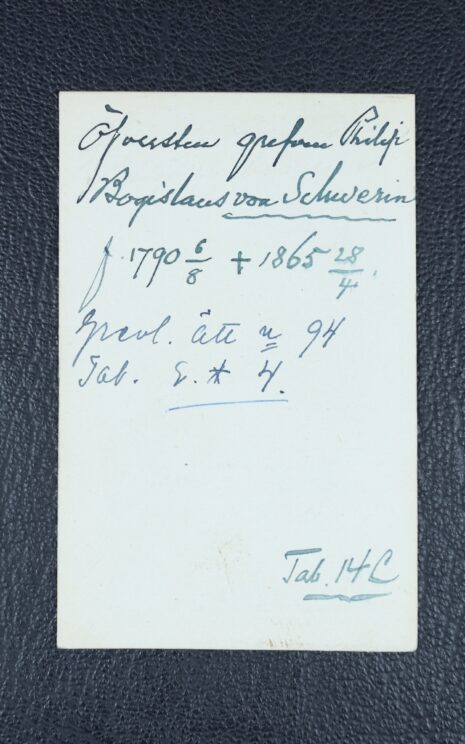 Öfversten grefven Philip
Bogislaus von Schwerin
f 1790 6/8 + 1865 28/4.
Grevl. ätt n 94
Tab. 4.
Tab. 14 C